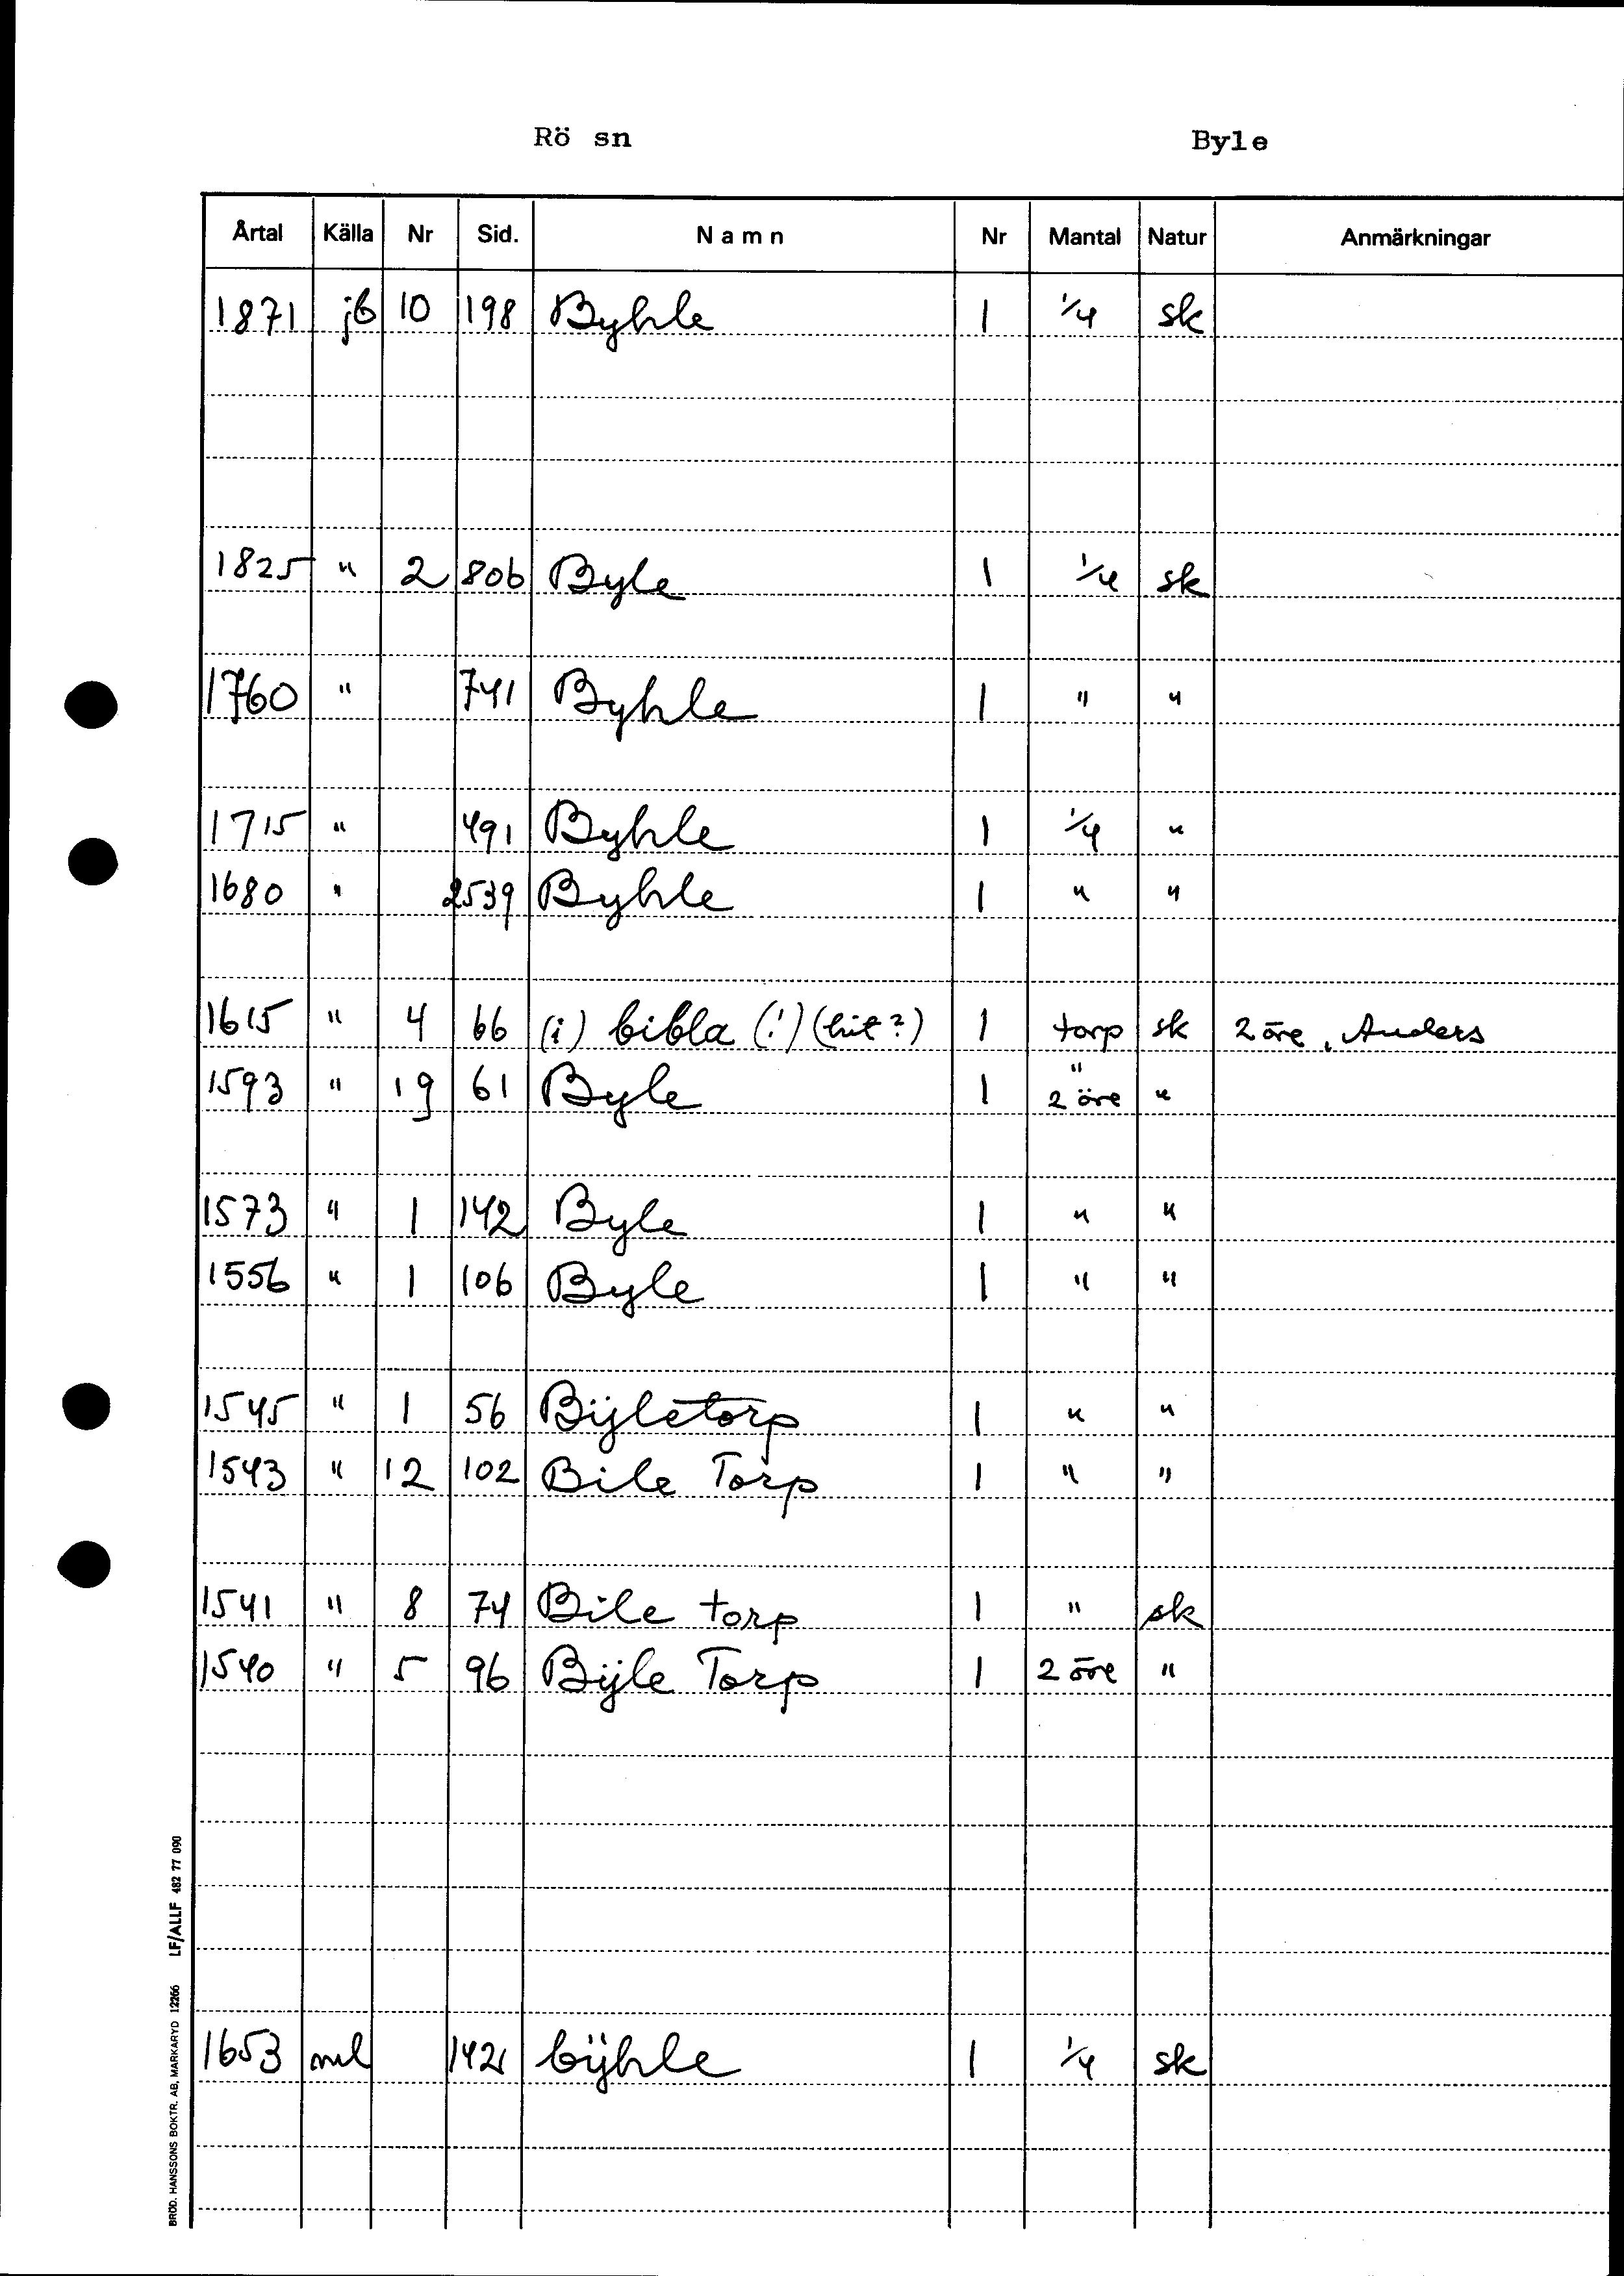 Rö sn Byle
Årtal Källa Nr Sid. Namn Nr Mantal Natur Anmärkningar
1871 jb 10 198 Byhle 1 1/4 sk
1825 " 2 806 Byle 1 1/4 sk
1760 " 741 Byhle 1 " "
1715 " 491 Byhle 1 1/4 "
1680 " 2539 Byhle 1 " "
1615 " 4 66 (i) bibla (!) (hit?) 1 torp sk 2 öre, Anders
1593 " 19 61 Byle 1 " 2 öre "
1573 " 1 142 Byle 1 " "
1556 " 1 106 Byle 1 " "
1545 " 1 56 Bijletorp 1 " "
1543 " 12 102 Bile Torp 1 " "
1541 " 8 74 Bile torp 1 " sk
1540 " 5 96 Bÿle Torp 1 2 öre "
1653 ml bÿhle 1 1/4 sk
BRÖD. HANSSONS BOKTR. AB, MARKARYD 12266 LF/ALLF 482 77 090